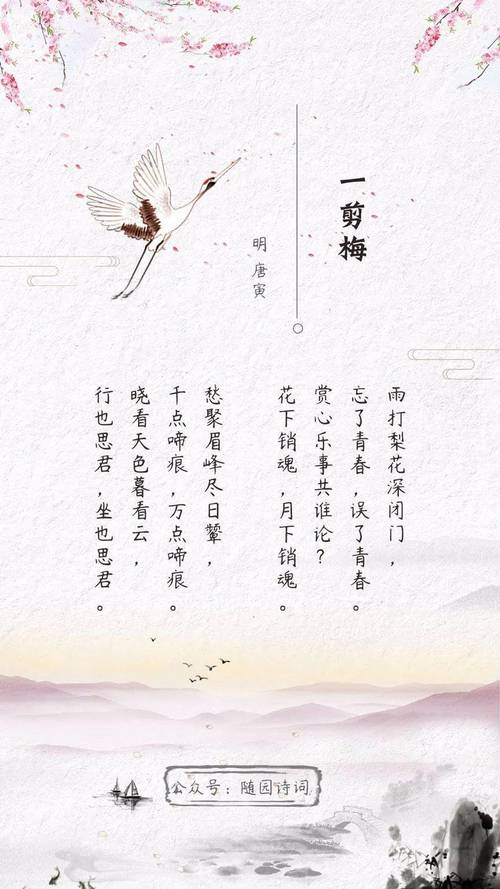 一剪梅
明 唐寅
雨打梨花深闭门，
忘了青春，误了青春。
赏心乐事共谁论？
花下销魂，月下销魂。
愁聚眉峰尽日颦，
千点啼痕，万点啼痕。
晓看天色暮看云，
行也思君，坐也思君。
公众号：随园诗词